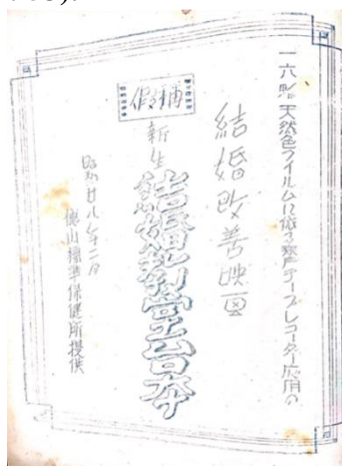 一六粍 天然色フイルムに依る発声テープレコーダー応用の
結婚改善映画
新生 結婚教室台本
昭和廿八年二月
俵山標準保健所提供